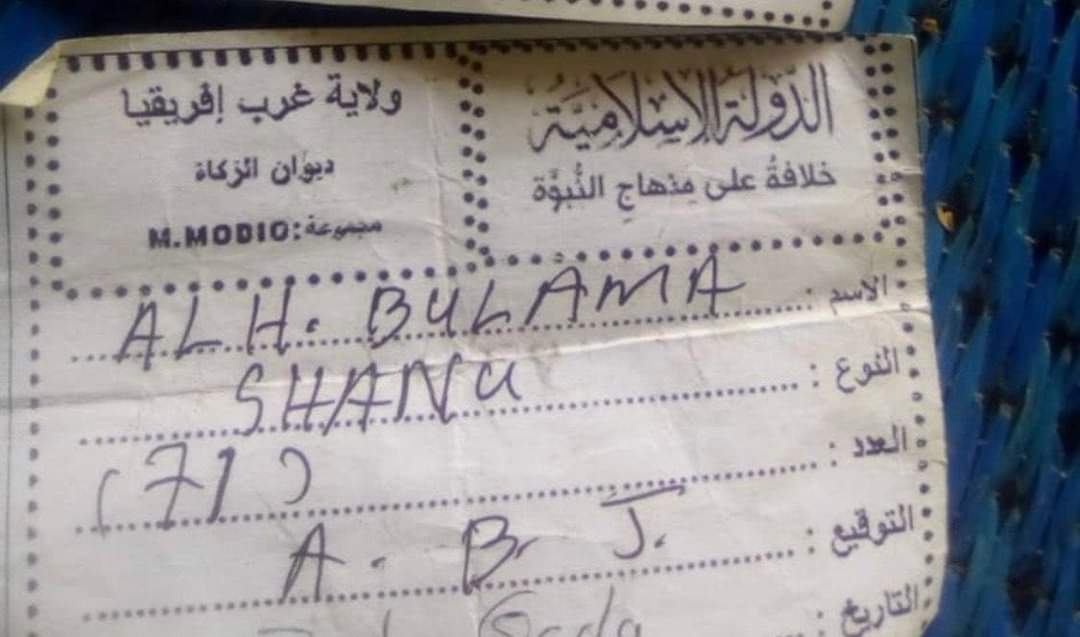 الدولة الإسلامية
خلافة على منهاج النبوة
ولاية غرب إفريقيا
ديوان الزكاة
مجموعة: M.MODIO
الاسم: ALH. BULAMA
النوع: SHANU
العدد: (71)
التوقيع: A. B. J.
التاريخ: